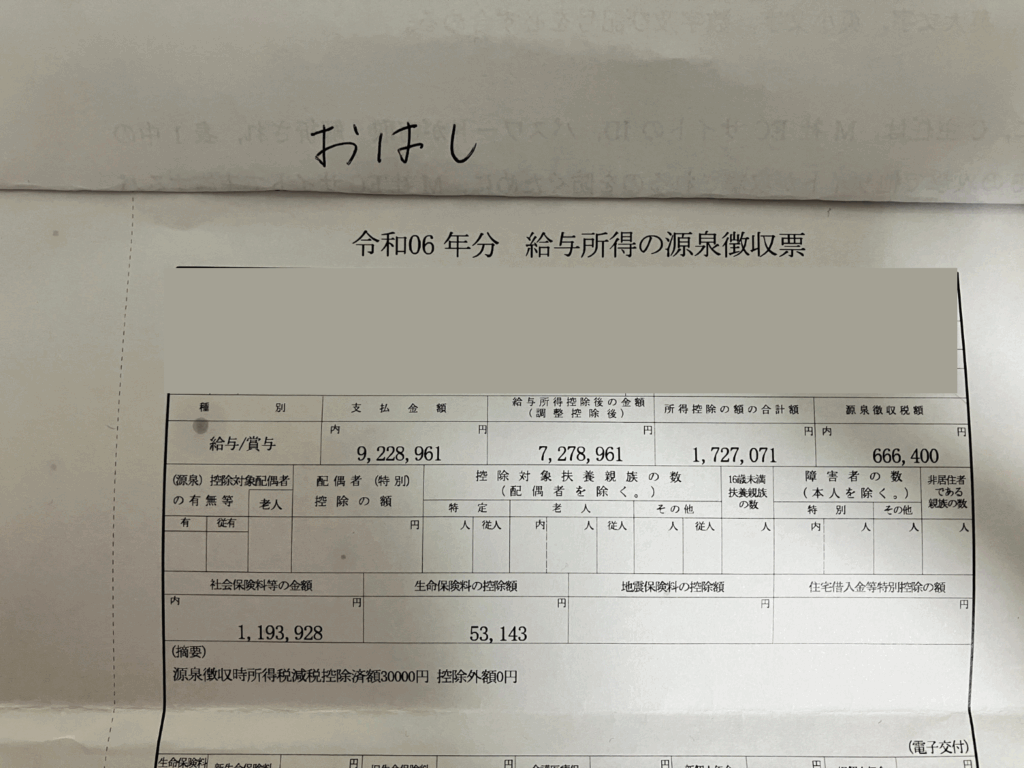 おはし
令和06 年分 給与所得の源泉徴収票
種別 支払金額 給与所得控除後の金額(調整控除後) 所得控除の額の合計額 源泉徴収税額
給与/賞与 内 9,228,961 円 7,278,961 円 1,727,071 円 内 666,400 円
(源泉)控除対象配偶者の有無等 老人 配偶者(特別)控除の額 控除対象扶養親族の数(配偶者を除く。) 16歳未満扶養親族の数 障害者の数(本人を除く。) 非居住者である親族の数
有 従有 円 特定 老人 その他 特別 その他
人 従人 内 人 従人 人 従人 人 内 人 人 人
社会保険料等の金額 生命保険料の控除額 地震保険料の控除額 住宅借入金等特別控除の額
内 1,193,928 円 53,143 円 円 円
(摘要)
源泉徴収時所得税減税控除済額30000円 控除外額0円
(電子交付)